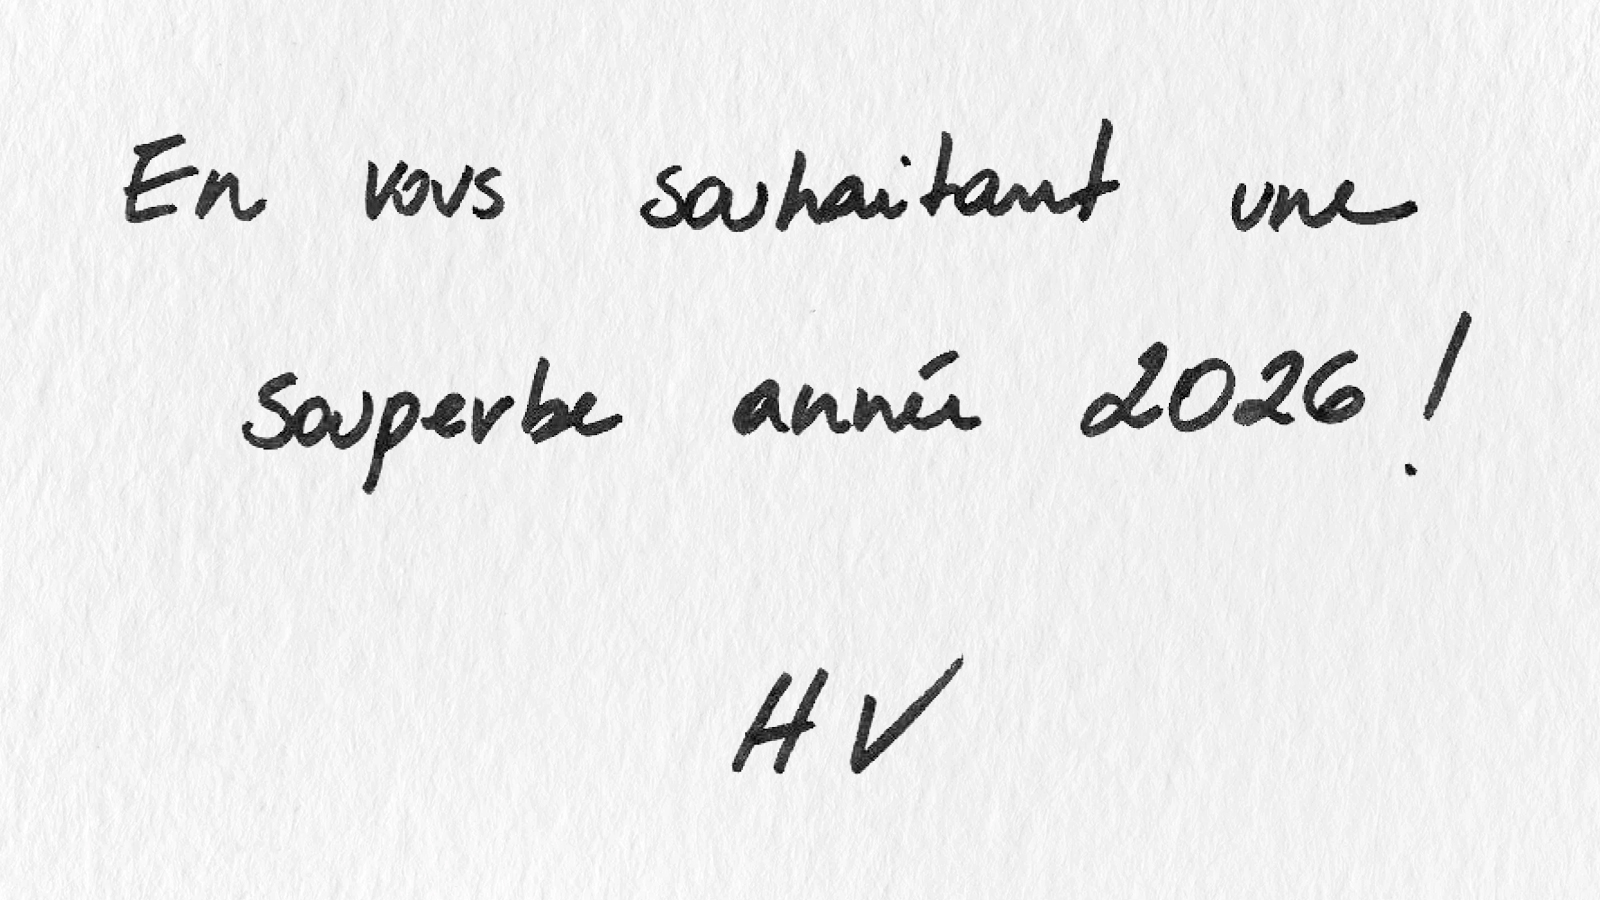 En vous souhaitant une
souperbe année 2026 !
HV